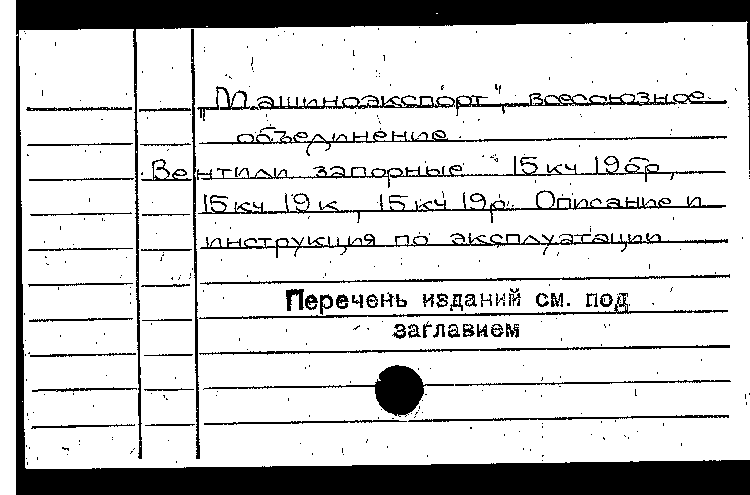 "Машиноэкспорт", всесоюзное
объединение
Вентили запорные 15кч 19бр,
15кч 19к, 15кч 19р. Описание и
инструкция по эксплуатации
Перечень изданий см. под
заглавием